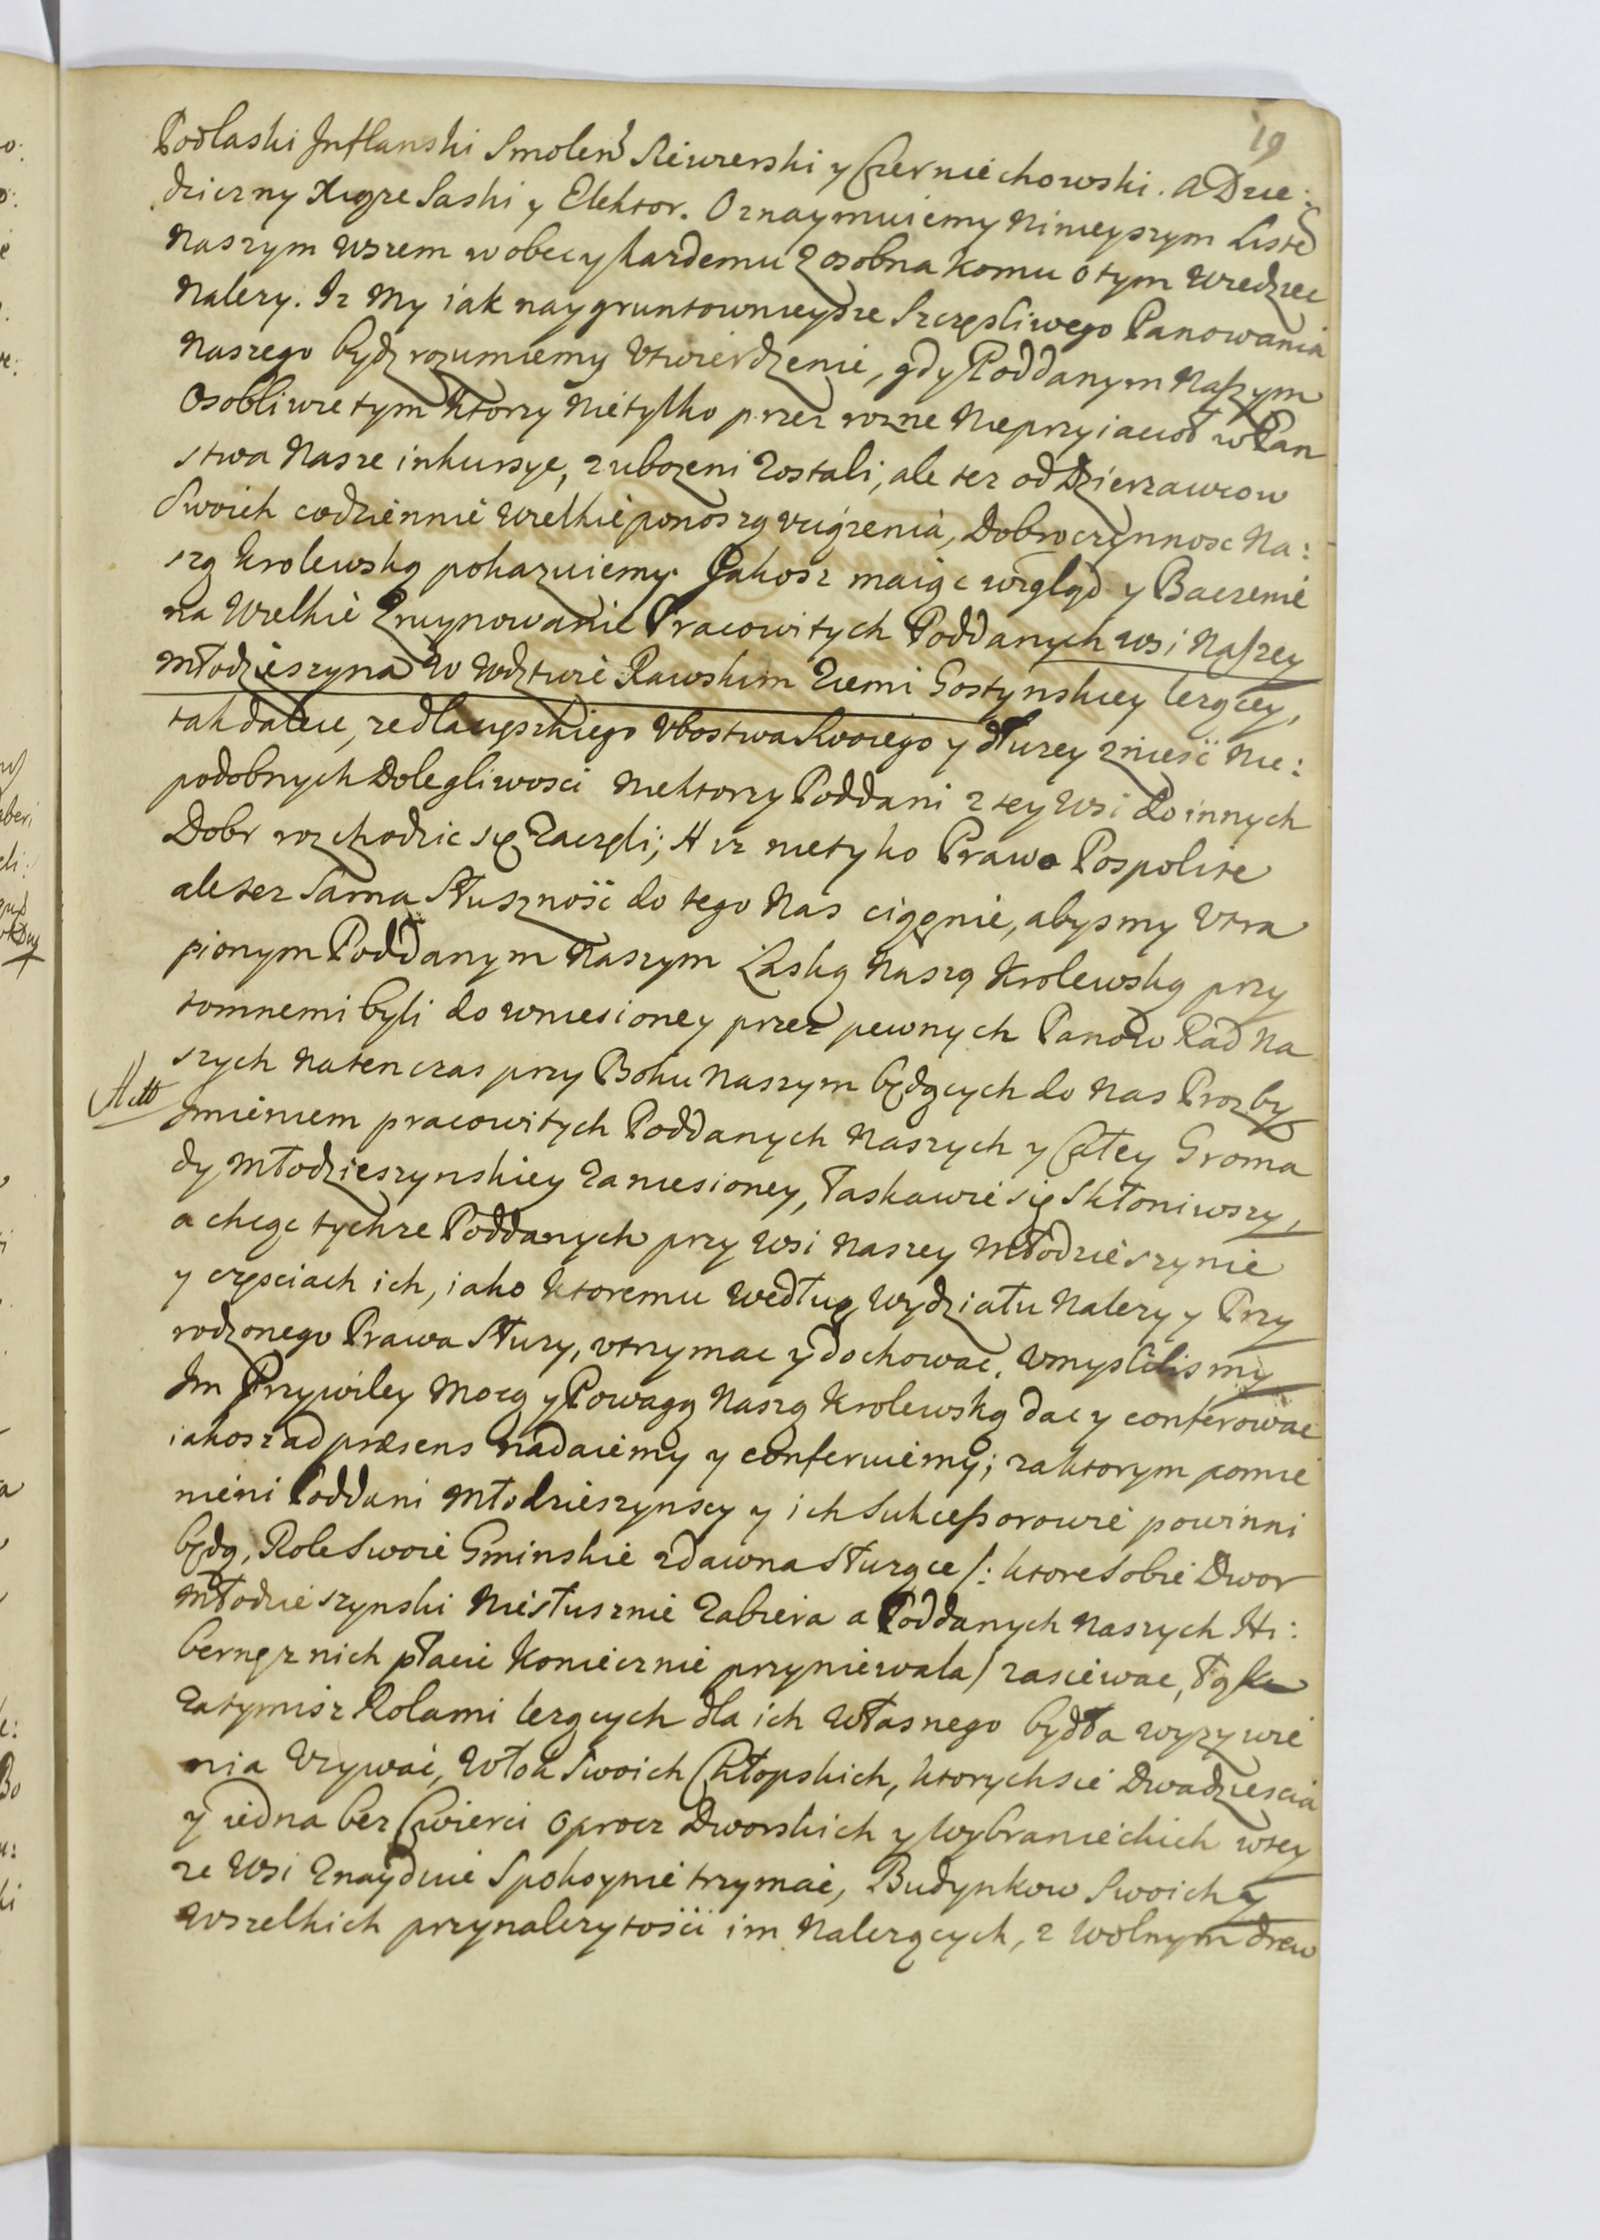 19
Podlaski Inflanski Smolen Siewierski y Czerniechowski. A Dzie:
dziczny Xiąze Saski y Elektor. Oznaymuiemy Ninieyszym Liste
Naszym wszem wobec y kazdemu Zosobna komu o tym wiedziec
Nalezy. Iz My iak naygruntownieysze Szczęsliwego Panowania
Naszego bydz rozumiemy Utwierdzenie, gdy Poddanym Naszym
Osobliwie tym ktorzy nietylko przez rozne Nieprzyiacioł w Pan
stwa Nasze inkursye, zubozeni Zostali, ale tez od Dzierzawcow
Swoich codziennie wielkie ponoszą uciązenia, Dobroczynnosc Na:
szą Krolewską pokazuiemy. Jakosz maiąc wzgląd y Baczenie
na Wielkie Zruynowanie Pracowitych Poddanych wsi Naszey
Młodzieszyna w Wdztwie Rawskim Ziemi Gostynskiey lezącey,
tak dalece, ze dla cięszkiego Ubostwa Swoiego y dłuzey znieść nie:
podobnych Dolegliwosci Niektorzy Poddani z tey Wsi do innych
Dobr rozchodzic się Zaczęli; A iz nietylko Prawo Pospolite
ale tez Sama Słuszność do tego Nas ciągnie, abysmy Utra
pionym Poddanym Naszym Łaską Naszą Krolewską przy
tomnemi byli do wniesioney przez pewnych Panow Rad Na
szych natenczas przy Boku Naszym będących do Nas Prozby
Imieniem pracowitych Poddanych Naszych y Całey Groma
dy Młodzieszynskiey Zaniesioney, łaskawie się Skłoniwszy,
a chcąc tychze Poddanych przy wsi Naszey Młodzieszynie
y częsciach ich, iako ktoremu według Wydziału Nalezy y Przy
rodzonego Prawa Słuzy, utrzymac y dochowac, umyslilismy
Im Przywiley Mocą y Powagą Naszą Krolewską dac y conferowac
iakosz ad præsens nadaiemy y conferuiemy; za ktorym pomie
nieni Poddani Młodzieszynscy y ich Sukcessorowie powinni
będą, Role Swoie Gminskie zdawna Słuzące /: ktore Sobie Dwor
Młodzieszynski Niesłusznie Zabiera a Poddanych Naszych Hi:
bernę z nich płacic koniecznie przyniewala / zasiewac, Łąk
Zatymisz Rolami lezących dla ich własnego bydła wyzywie
nia Uzywać, Włok Swoich Chłopskich, ktorych sie Dwadziescia
y iedna bez Cwierci oprocz Dworskich y Wybranieckich w tey
ze Wsi Znayduie Spokoynie trzymać, Budynkow Swoich y
wszelkich przynalezytości im Nalezących, z wolnym drew